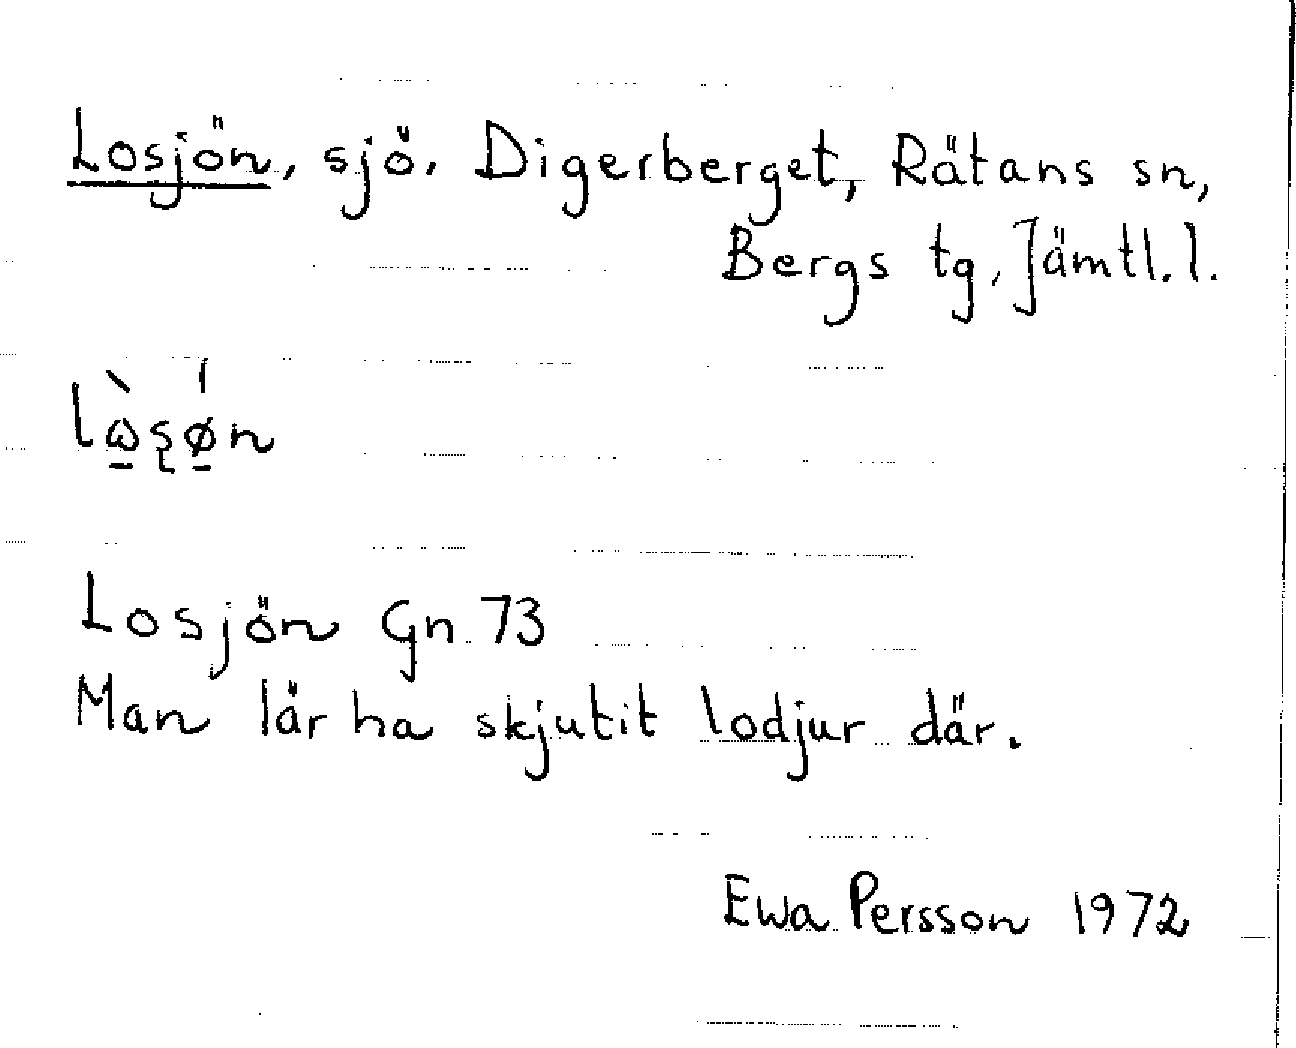 Losjön, sjö. Digerberget, Rätans sn,
Bergs tg, Jämtl. l.
Losjön Gn 73
Man lär ha skjutit lodjur där.
Ewa Persson 1972